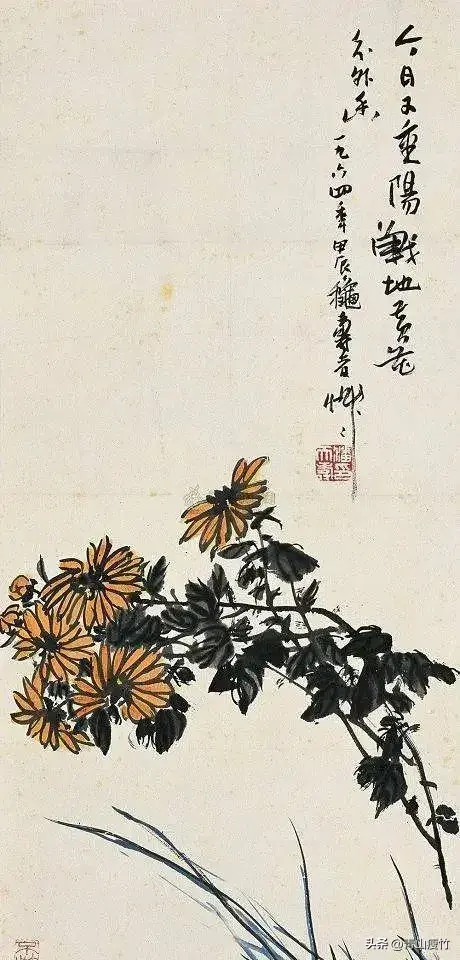 今日又重陽戰地黃花
分外香
一九六四年甲辰龝壽者
头条 @山瘦竹